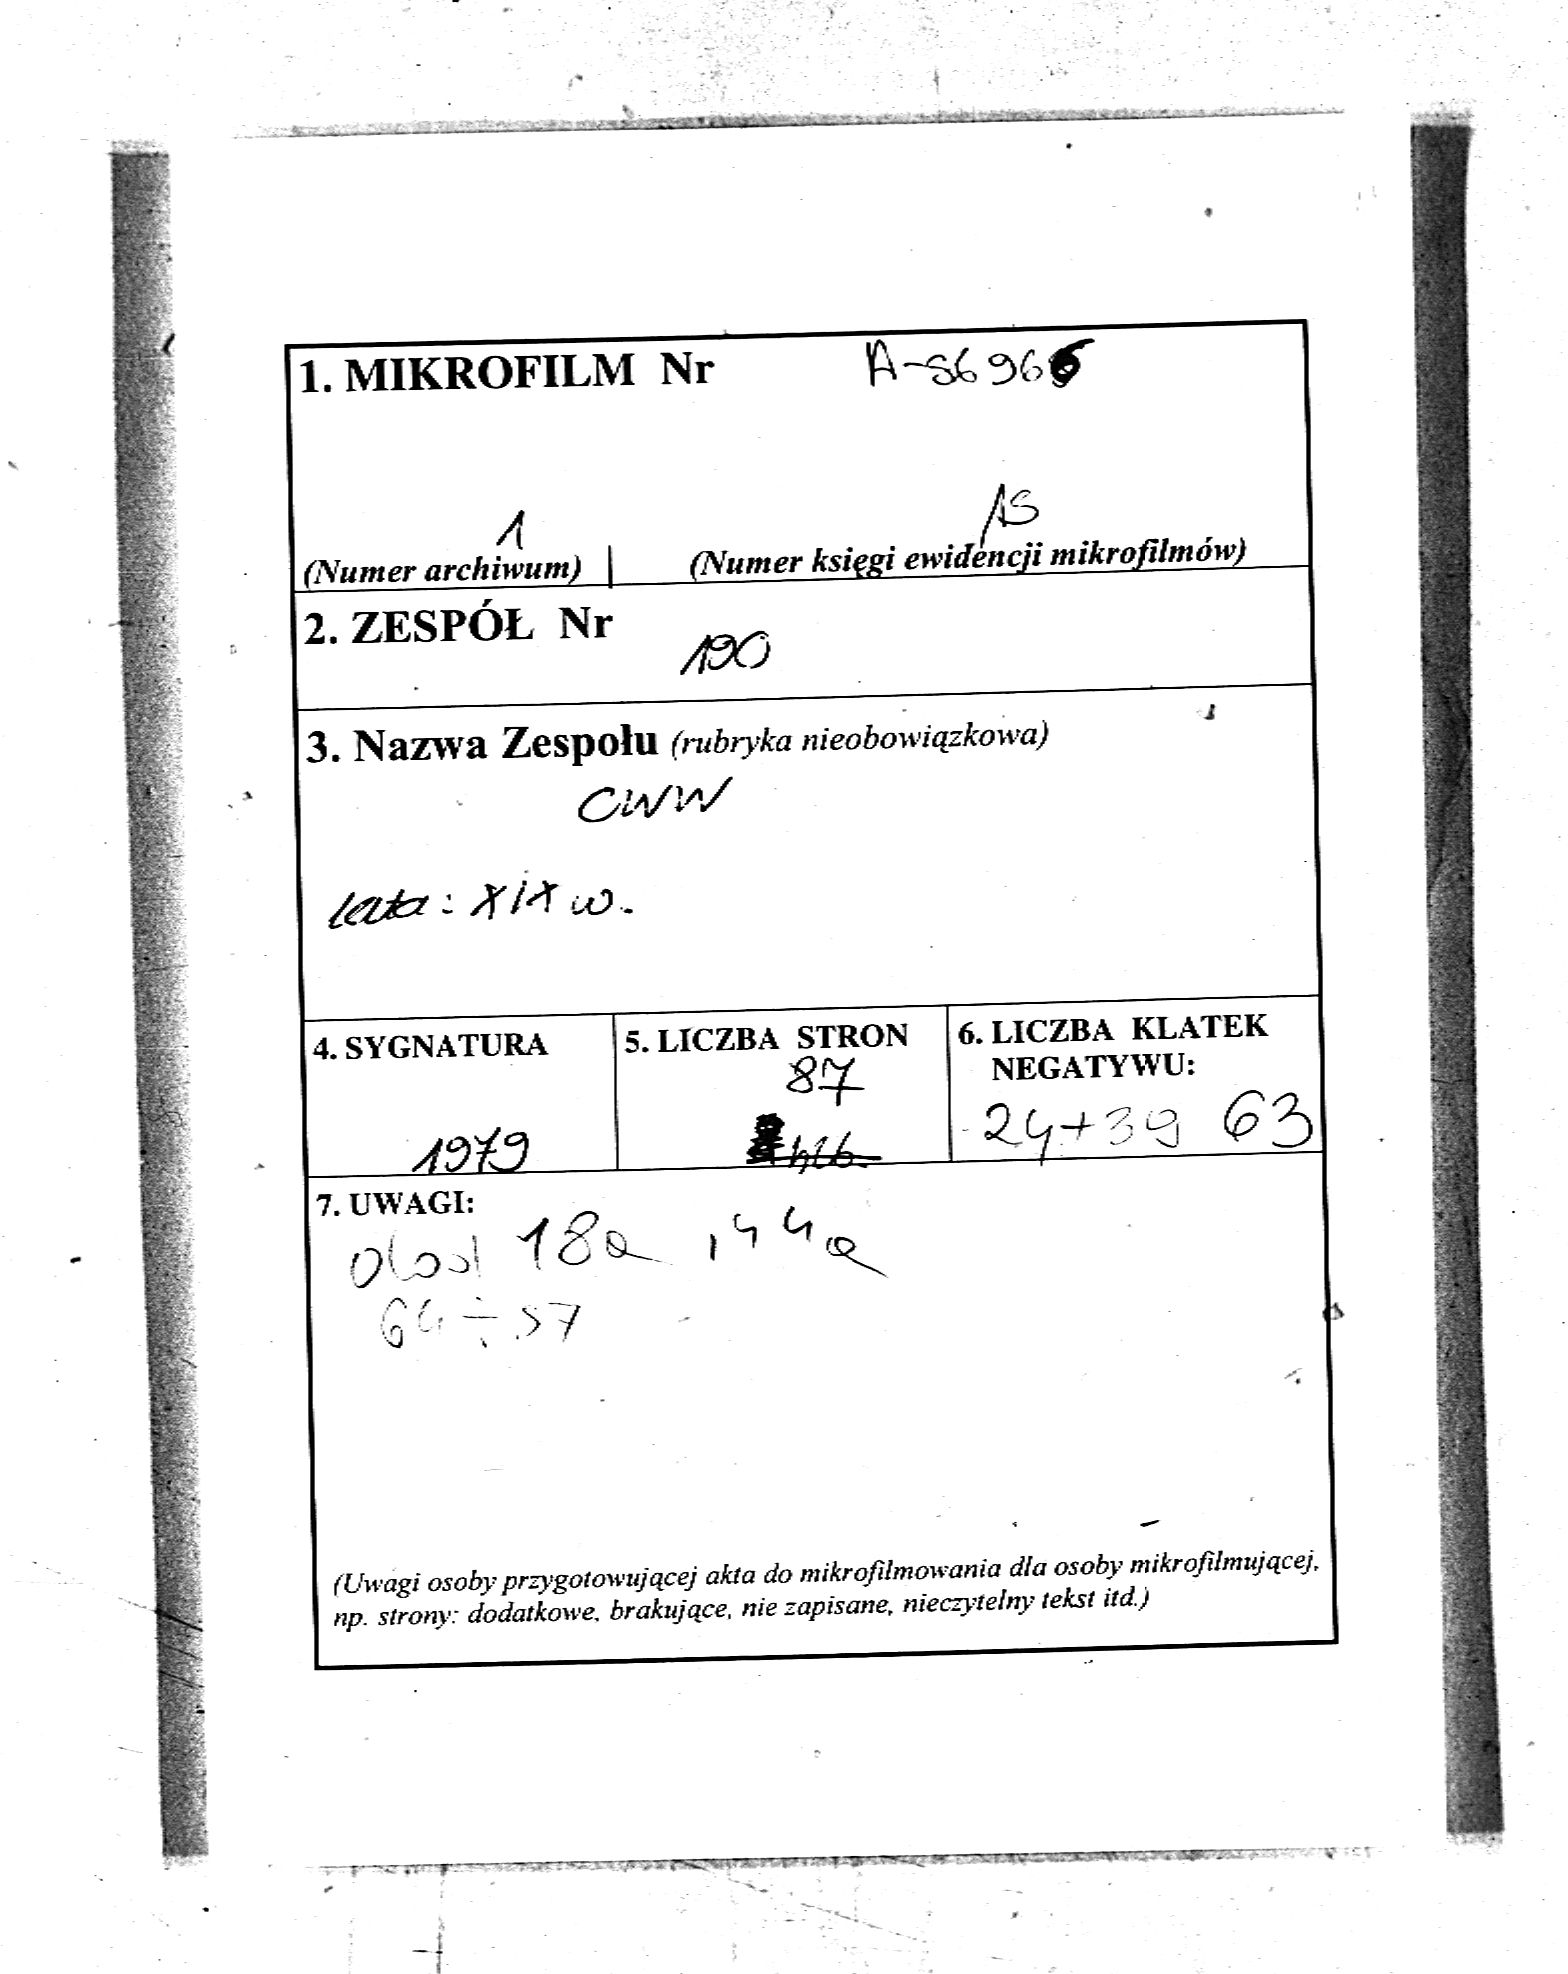 1. MIKROFILM Nr A-86966
1 15
(Numer archiwum) | (Numer księgi ewidencji mikrofilmów)
2. ZESPÓŁ Nr
190
3. Nazwa Zespołu (rubryka nieobowiązkowa)
CWW
lata: XIX w.
4. SYGNATURA
1979
5. LICZBA STRON
87
6. LICZBA KLATEK
NEGATYWU:
24+39 63
7. UWAGI:
18a, 44a
(Uwagi osoby przygotowującej akta do mikrofilmowania dla osoby mikrofilmującej,
np. strony: dodatkowe, brakujące, nie zapisane, nieczytelny tekst itd.)